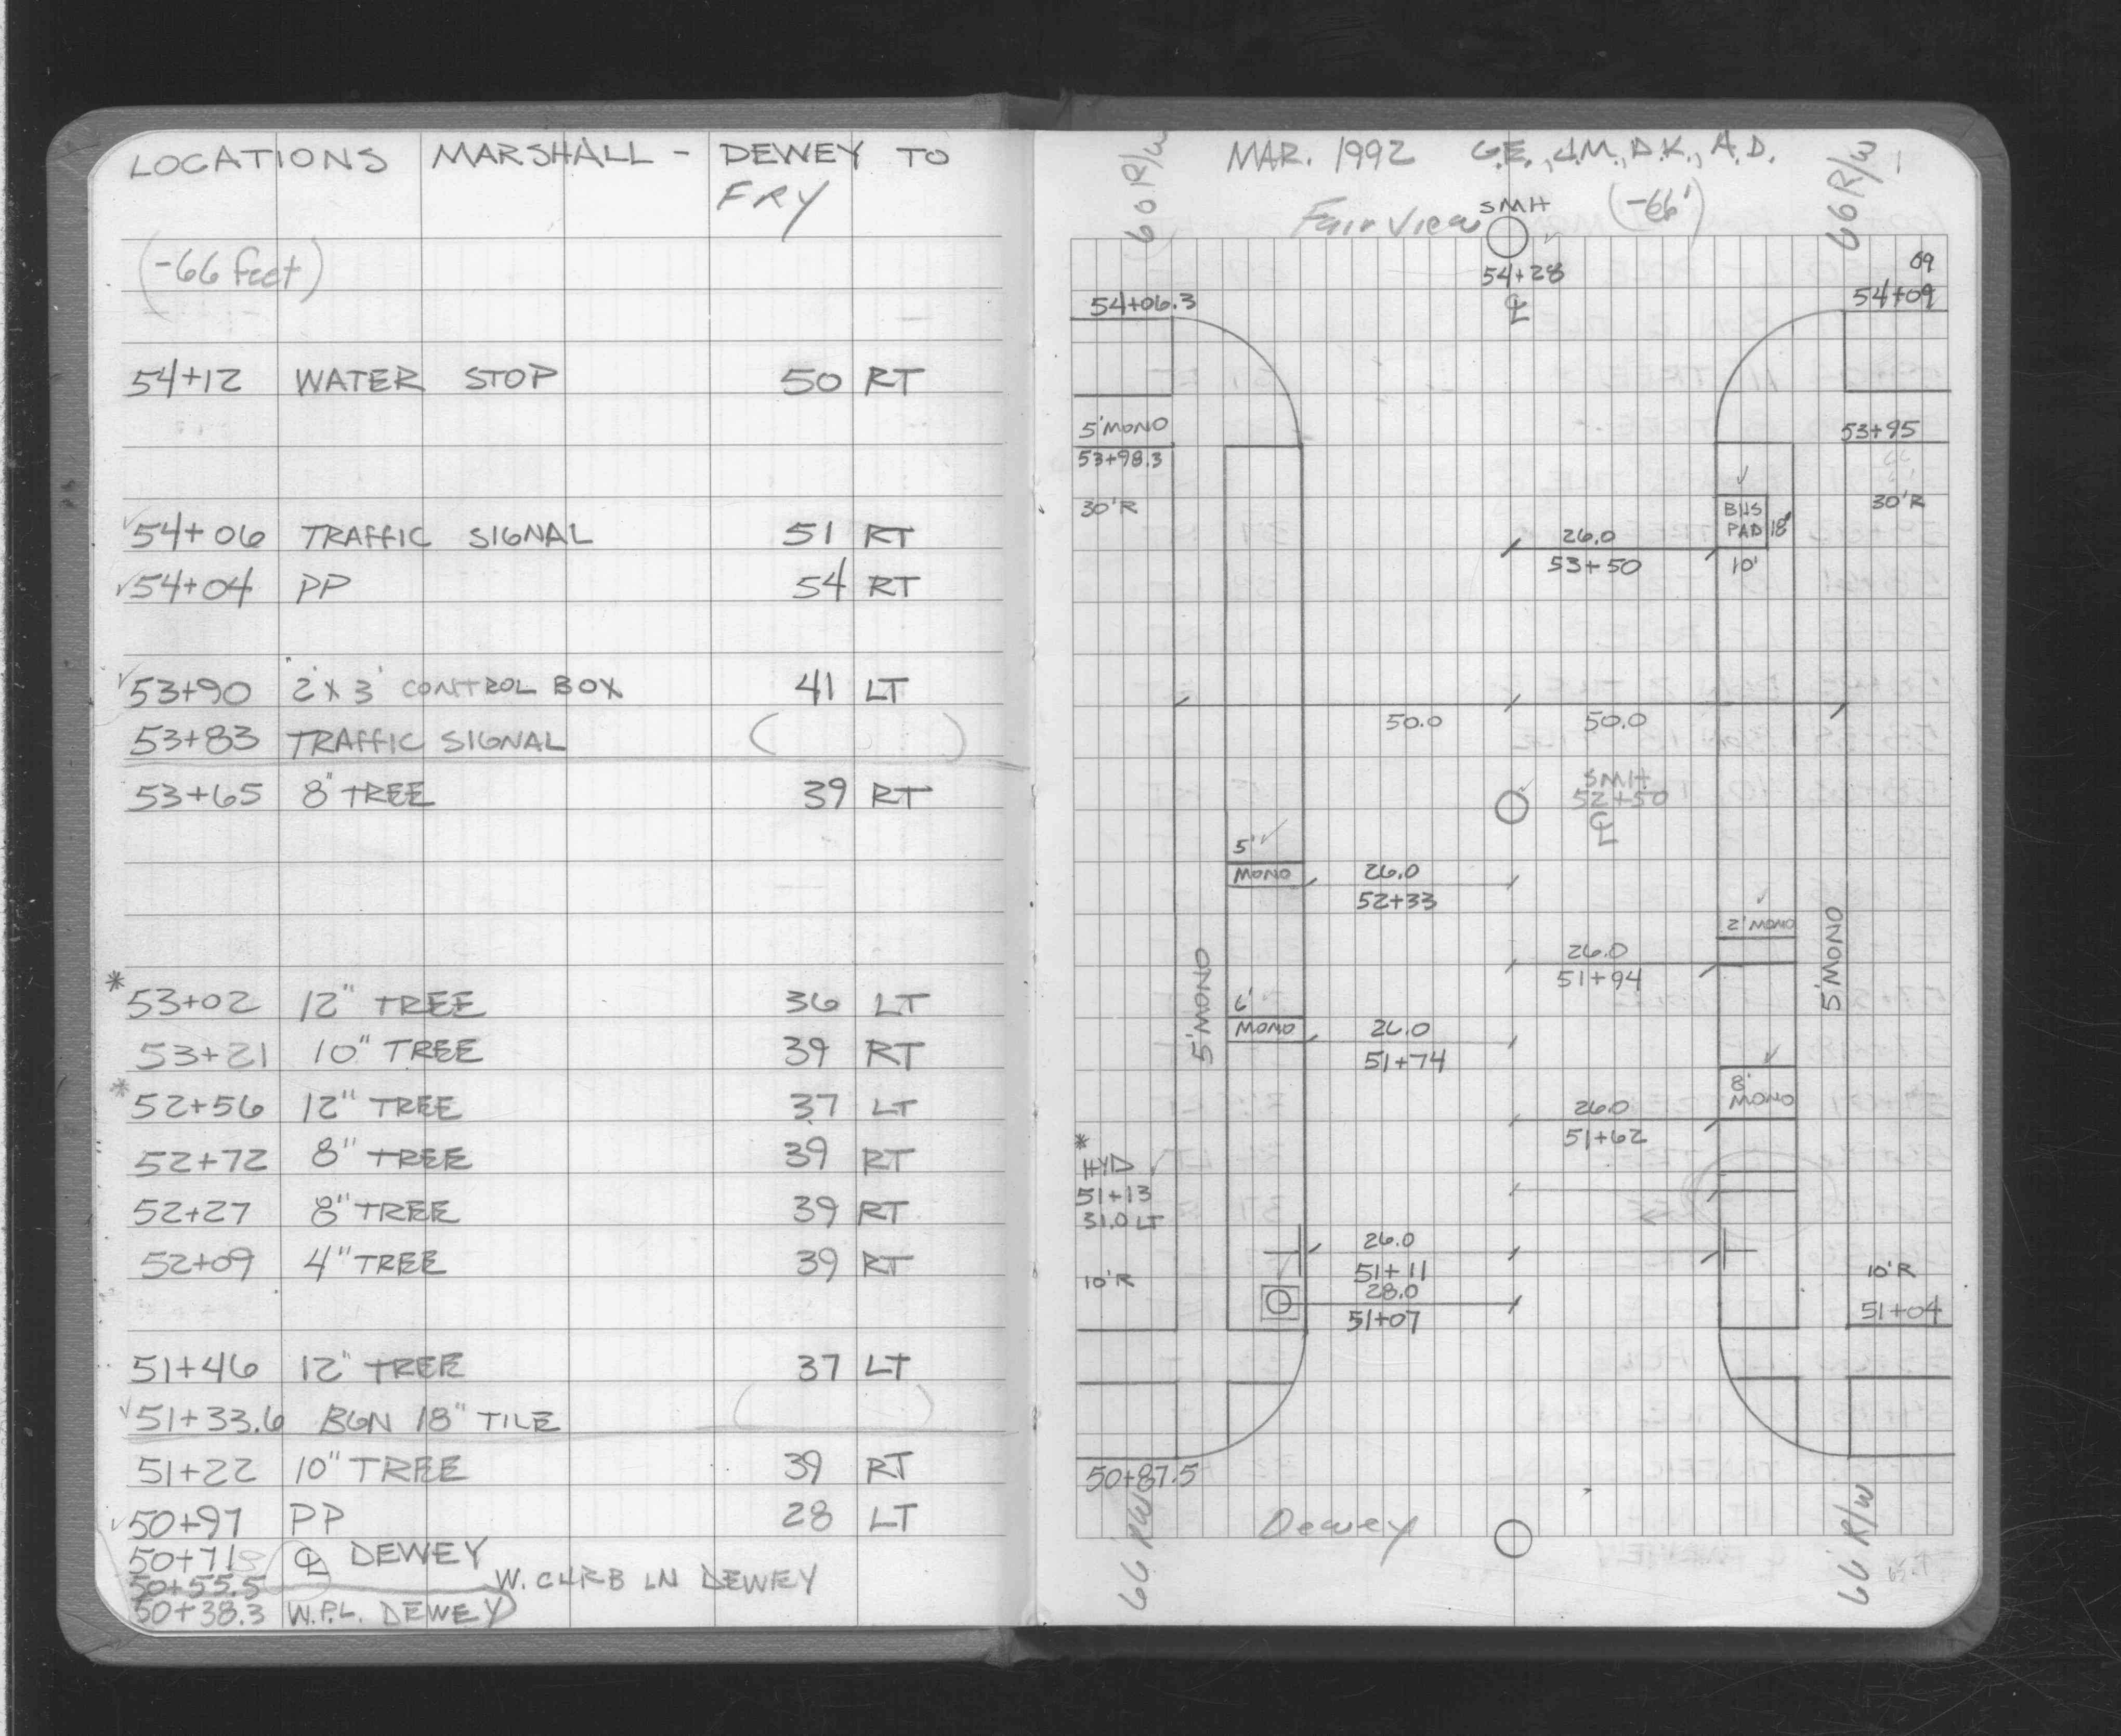 LOCATIONS MARSHALL - DEWEY TO
FRY
(-66 feet)
54+12 WATER STOP 50 RT
✓54+06 TRAFFIC SIGNAL 51 RT
✓54+04 PP 54 RT
✓53+90 2'x3' CONTROL BOX 41 LT
53+83 TRAFFIC SIGNAL ( )
53+65 8" TREE 39 RT
*53+02 12" TREE 36 LT
53+21 10" TREE 39 RT
*52+56 12" TREE 37 LT
52+72 8" TREE 39 RT
52+27 8" TREE 39 RT
52+09 4" TREE 39 RT
51+46 12" TREE 37 LT
✓51+33.6 BGN 18" TILE ( )
51+22 10" TREE 39 RT
✓50+97 PP 28 LT
50+71 ℄ DEWEY
50+55.5 W. CURB LN DEWEY
50+38.3 W.P.L. DEWEY
MAR. 1992 G.E., J.M., D.K., A.D. 1
60 R/W
66 R/W
Fair View SMH (-66')
54+28
℄
09
54+06.3
54+09
5' MONO
53+98.3
30'R
53+95
30'R
BUS
PAD 18'
10'
26.0
53+50
50.0 50.0
SMH
52+50
℄
5'
MONO
26.0
52+33
2' MONO
26.0
51+94
5' MONO
5' MONO
6'
MONO
26.0
51+74
8'
MONO
26.0
51+62
*
HYD
51+13
31.0 LT
26.0
51+11
28.0
51+07
10'R
10'R
51+04
50+87.5
Dewey
66' R/W
66' R/W